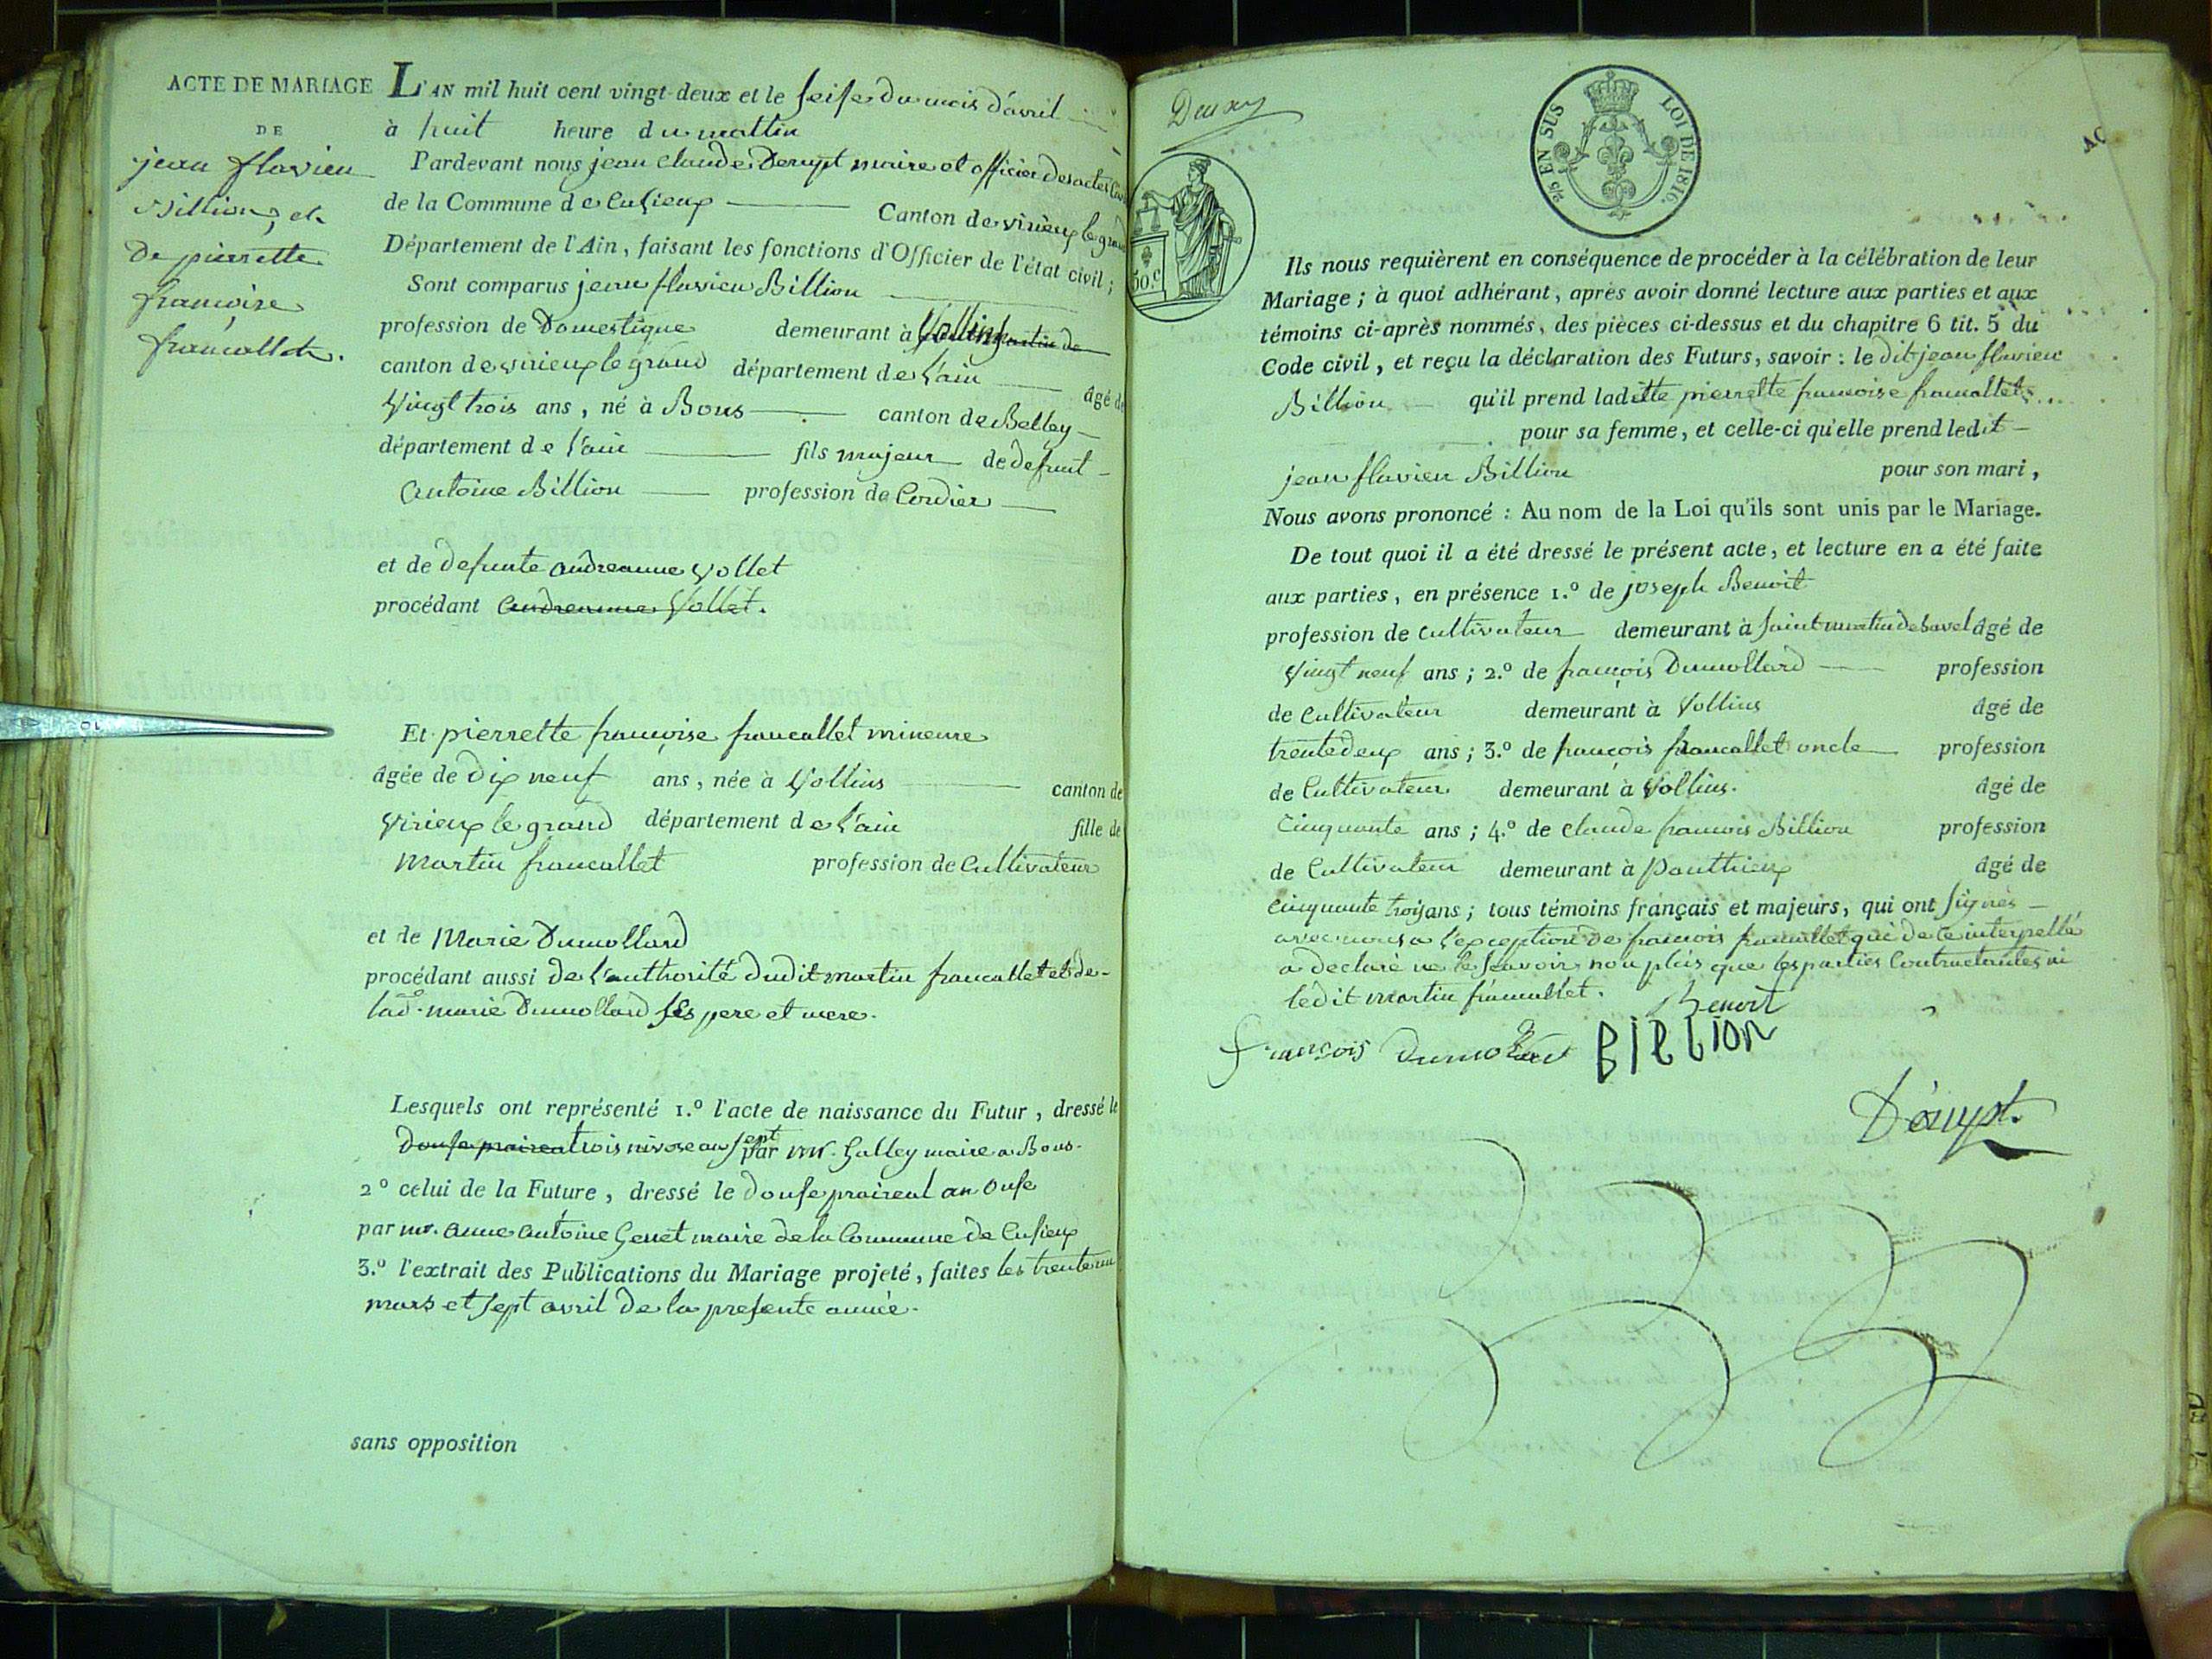 ACTE DE MARIAGE
DE
jean flavien
Billion, et
de pierrette
francoise
francallet.
L'AN mil huit cent vingt-deux et le seise du mois d'avril
à huit heure du mattin
Pardevant nous jean claude Derupt maire et officier des actes
de la Commune de Cusieux Canton de virieux le grand
Département de l'Ain, faisant les fonctions d'Officier de l'état civil;
Sont comparus jean flavien Billion
profession de Domestique demeurant à Vollins
canton de virieux le grand département de l'ain âgé de
Vingt trois ans, né à Bons canton de Belley
département de l'ain fils majeur de defunt
Antoine Billion profession de Cordier
et de defunte andreanne Vollet
procédant andreanne Vollet.
Et pierrette francoise francallet mineure
âgée de dix neuf ans, née à Vollins canton de
Virieux le grand département de l'ain fille de
Martin francallet profession de Cultivateur
et de Marie Dumollard
procédant aussi de l'authorité dudit martin francallet et de
lad. marie Dumollard ses pere et mere.
Lesquels ont représenté 1.º l'acte de naissance du Futur, dressé le
douse praireal trois nivose an sept par mr. Galley maire a Bons.
2º celui de la Future, dressé le douse praireal an onse
par mr. anne antoine Genet maire de la Commune de Cusieux
3.º l'extrait des Publications du Mariage projeté, faites les trente un
mars et sept avril de la presente année.
sans opposition
Deux
50.C
2/5 EN SUS LOI DE 1816.
40
Ils nous requièrent en conséquence de procéder à la célébration de leur
Mariage; à quoi adhérant, après avoir donné lecture aux parties et aux
témoins ci-après nommés, des pièces ci-dessus et du chapitre 6 tit. 5 du
Code civil, et reçu la déclaration des Futurs, savoir: le dit jean flavien
Billion qu'il prend laditte pierrette francoise francallet
pour sa femme, et celle-ci qu'elle prend ledit
jean flavien Billion pour son mari,
Nous avons prononcé: Au nom de la Loi qu'ils sont unis par le Mariage.
De tout quoi il a été dressé le présent acte, et lecture en a été faite
aux parties, en présence 1.º de joseph Benoit
profession de cultivateur demeurant à saint martin de bavel âgé de
Vingt neuf ans; 2.º de françois Dumollard profession
de Cultivateur demeurant à Vollins âgé de
trente deux ans; 3.º de françois francallet oncle profession
de Cultivateur demeurant à Vollins. âgé de
Cinquante ans; 4.º de claude francois Billion profession
de Cultivateur demeurant à Pouthieux âgé de
cinquante trois ans; tous témoins français et majeurs, qui ont signés
avec nous a l'exception de francois francallet qui de ce interpellé
a declaré ne le savoir non plus que les parties Contractantes ni
ledit martin francallet. Benoit
françois Dumollard BILLION
Derupt.